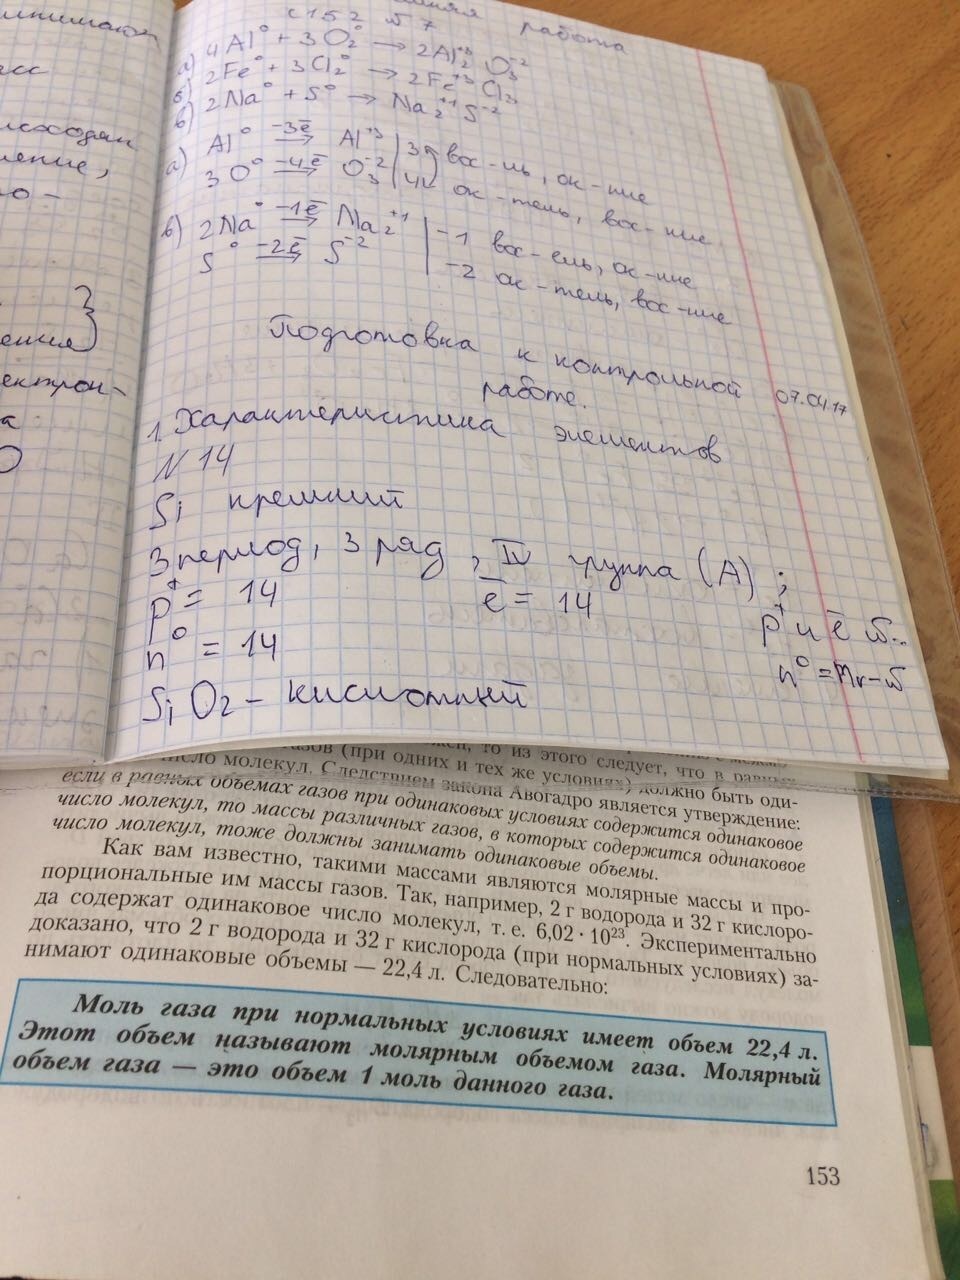 нимают
работа
с 152 № 7
а) 4Al⁰ + 3O₂⁰ → 2Al₂⁺³ O₃⁻²
б) 2Fe⁰ + 3Cl₂⁰ → 2Fe⁺³ Cl₃
в) 2Na⁰ + S⁰ → Na₂⁺¹ S⁻²
а) Al⁰ −3ē → Al⁺³ | 3 вос-ль, ок-ние
3O⁰ −4ē → O₃⁻² | 4 ок-тель, вос-ние
в) 2Na⁰ −1ē → Na₂⁺¹ | −1 вос-ель, ок-ние
S⁰ −2ē → S⁻² | −2 ок-тель, вос-ние
ение,
ения
ектрон-
Подготовка к контрольной 07.04.17
работе.
1. Характеристика элементов
N 14
Si кремний
3 период, 3 ряд, IV группа (А);
p⁺ = 14 ē = 14
p⁺ и ē №..
n⁰ = 14
n⁰ = Mr − №
SiO₂ – кислотный
то из этого следует, что в равных
газов (при одних и тех же условиях) должно быть оди-
число молекул. Следствием закона Авогадро является утверждение:
если в равных объемах газов при одинаковых условиях содержится одинаковое
число молекул, то массы различных газов, в которых содержится одинаковое
число молекул, тоже должны занимать одинаковые объемы.
Как вам известно, такими массами являются молярные массы и про-
порциональные им массы газов. Так, например, 2 г водорода и 32 г кислоро-
да содержат одинаковое число молекул, т. е. 6,02 · 10²³. Экспериментально
доказано, что 2 г водорода и 32 г кислорода (при нормальных условиях) за-
нимают одинаковые объемы — 22,4 л. Следовательно:
Моль газа при нормальных условиях имеет объем 22,4 л.
Этот объем называют молярным объемом газа. Молярный
объем газа — это объем 1 моль данного газа.
153